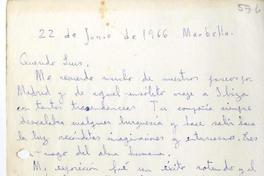 22 de Junio de 1966 Marbella.
Querido Luis.
Me recuerdo mucho de nuestros paseos por
Madrid y de aquel insólito viaje a Ibiza
con tantas trascendencias. Tu compañía siempre
descalabra cualquier burguesía y hace salir a
la luz recónditas imaginaciones y
del alma humana.
Mi exposición fue un éxito rotundo y el